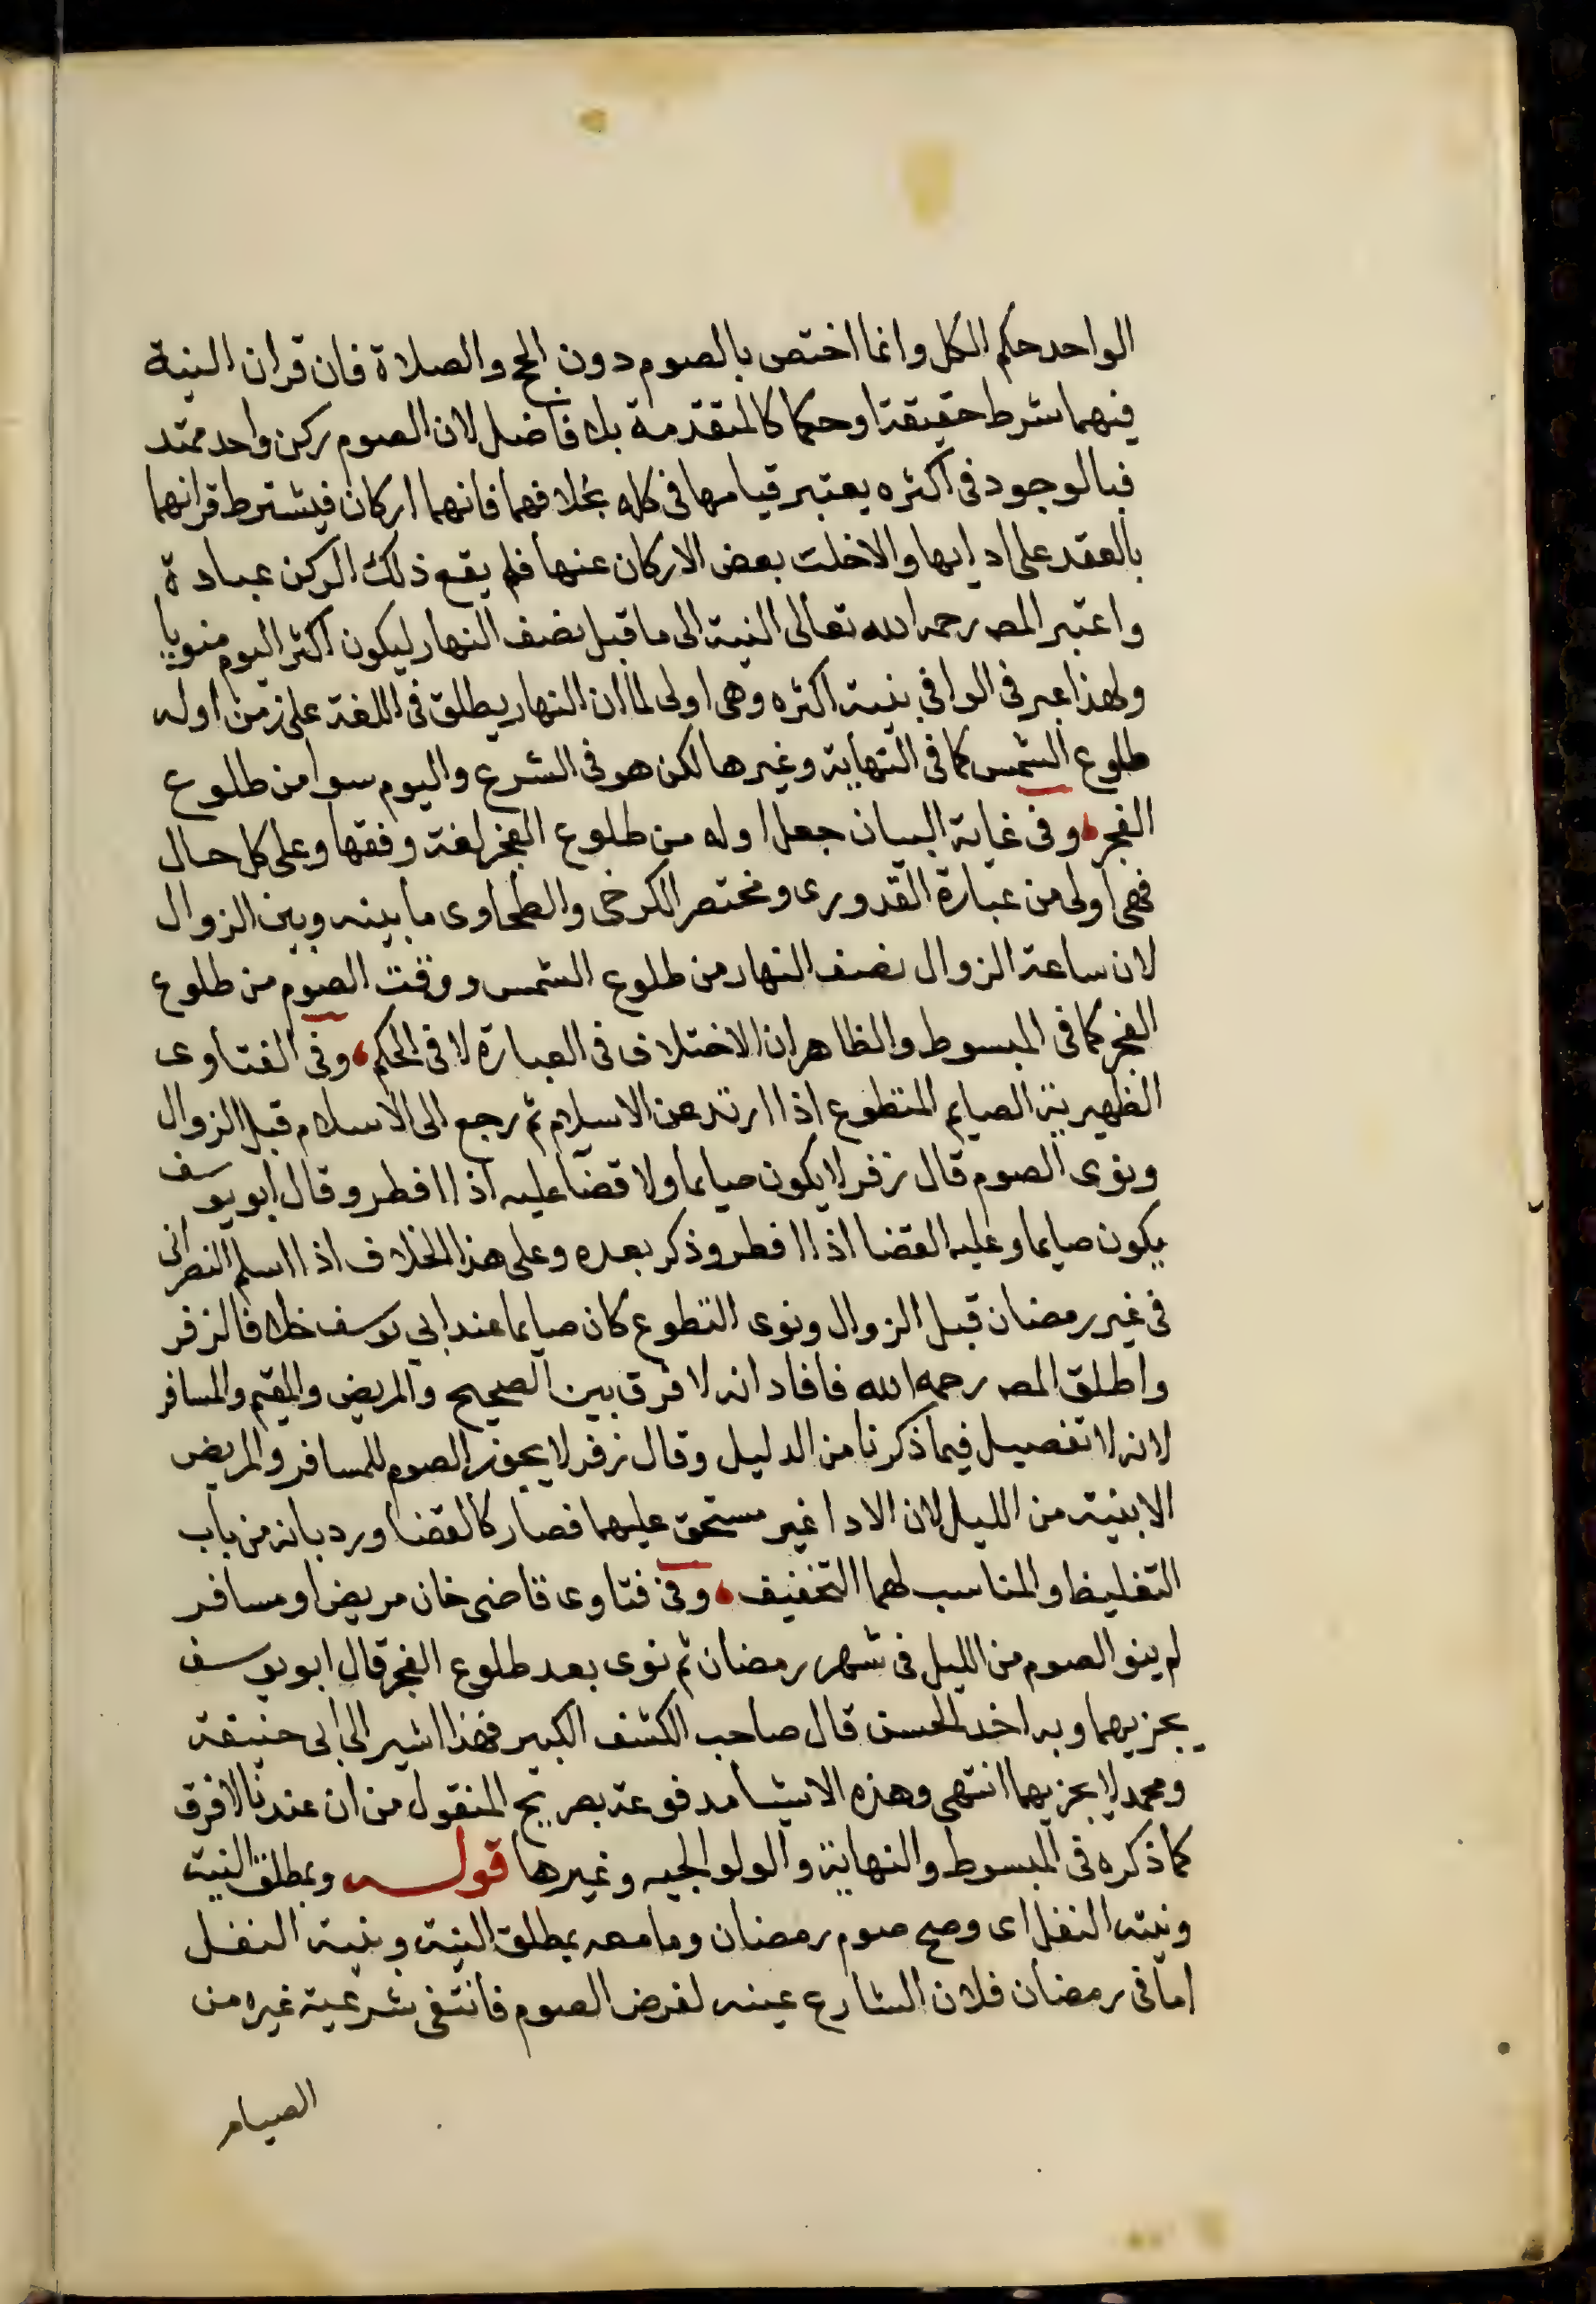 الواحد حكم الكل وانما اختص بالصوم دون الحج والصلاة فان قران النية
فيهما شرط حقيقة او حكما كالمتقدمة بلا فاضل لان الصوم ركن واحد ممتد
فبالوجود فى اكثره يعتبر قيامها فى كله بخلافهما فانهما اركان فيشترط قرانهما
بالعقد على ادايها والاخلت بعض الاركان عنها فلم يقع ذلك الركن عبادة
واعتبر المصـ رحمه الله تعالى النية الى ما قبل نصف النهار ليكون اكثر اليوم منويا
ولهذا عبر فى الوافي بنية اكثره وهى اولى لما ان النهار يطلق فى اللغة على زمن اوله
طلوع الشمس كما فى النهاية وغيرها لكن هو فى الشرع واليوم سوا من طلوع
الفجر، وفى غاية البيان جعل اوله من طلوع الفجر لغة وفقها وعلى كل حال
فهى اولى من عبارة القدورى ومختصر الكرخى والطحاوى ما بينه وبين الزوال
لان ساعة الزوال نصف النهار من طلوع الشمس ووقت الصوم من طلوع
الفجر كما فى المبسوط والظاهر ان الاختلاف فى العبارة لا فى الحكم، وفى الفتاوى
الظهيرية الصايم المتطوع اذا ارتد عن الاسلام ثم رجع الى الاسلام قبل الزوال
ونوى الصوم قال زفر لا يكون صايما ولا قضا عليه اذا افطر وقال ابو يوسف
يكون صايما وعليه القضا اذا افطر وذكر بعده وعلى هذا الخلاف اذا اسلم النصرانى
فى غير رمضان قبل الزوال ونوى التطوع كان صايما عند ابي يوسف خلافا لزفر
واطلق المصـ رحمه الله فافاد انه لا فرق بين الصحيح والمريض والمقيم والمسافر
لانه لا تفصيل فيما ذكرنا من الدليل وقال زفر لا يجوز الصوم للمسافر والمريض
الا بنية من الليل لان الادا غير مستحق عليهما فصار كالقضا ورد بانه من باب
التغليظ والمناسب لهما التخفيف، وفى فتاوى قاضى خان مريض او مسافر
لم ينو الصوم من الليل فى شهر رمضان ثم نوى بعد طلوع الفجر قال ابو يوسف
يجزيهما وبه اخذ الحسن قال صاحب الكشف الكبير فهذا اشير الى ابى حنيفة
ومحمد لا يجزيهما انتهى وهذه الاشيا مدفوعة بصريح المنقول من ان عندنا لا فرق
كما ذكره فى المبسوط والنهاية والولوالجيه وغيرها قوله وبمطلق النية
ونية النفل اى وصح صوم رمضان وما معه بمطلق النية وبنية النفل
اما فى رمضان فلان الشارع عينه لفرض الصوم فانتفى شرعية غيره من
الصيام